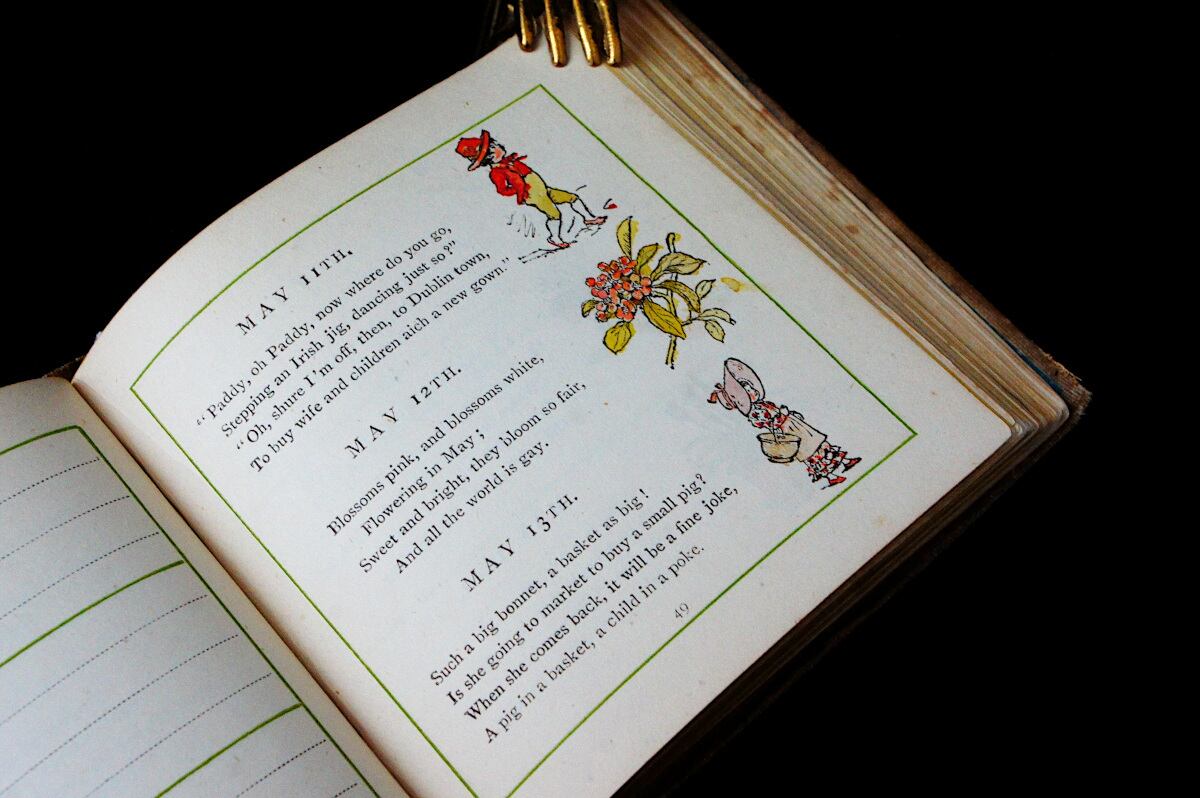 MAY 11TH.
"Paddy, oh Paddy, now where do you go,
Stepping an Irish jig, dancing just so?"
"Oh, shure I'm off, then, to Dublin town,
To buy wife and children aich a new gown."
MAY 12TH.
Blossoms pink, and blossoms white,
Flowering in May;
Sweet and bright, they bloom so fair,
And all the world is gay.
MAY 13TH.
Such a big bonnet, a basket as big!
Is she going to market to buy a small pig?
When she comes back, it will be a fine joke,
A pig in a basket, a child in a poke.
49